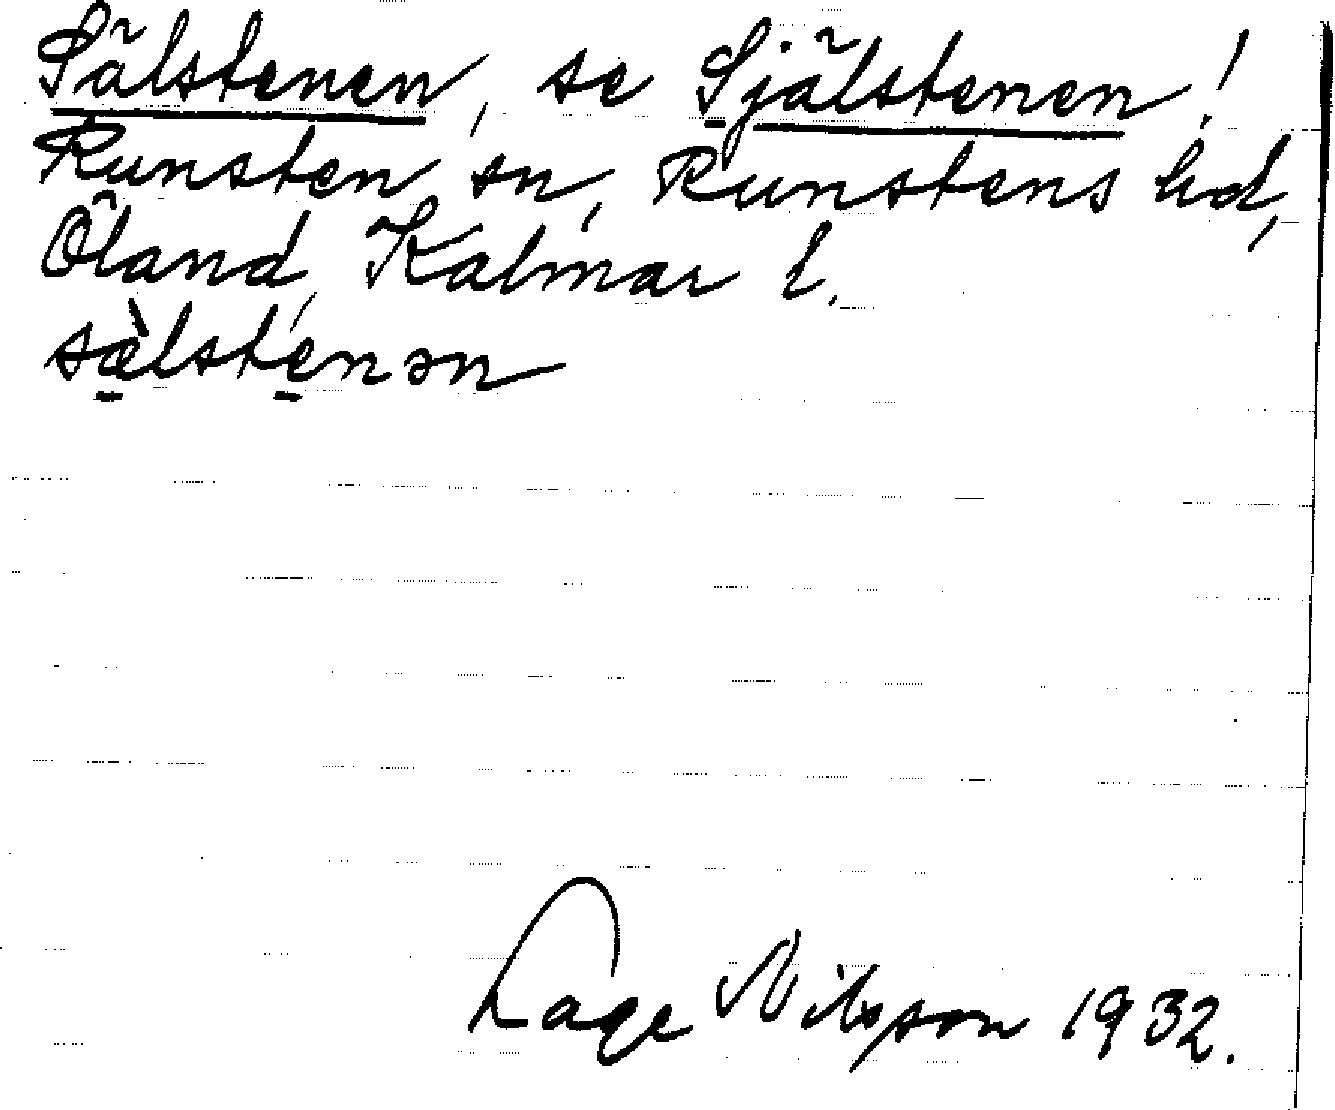 Sälstenen, se Själstenen!
Runsten sn, Runstens hd,
Öland, Kalmar l.
sæ̀lstenən
Lage Nilsson 1932.